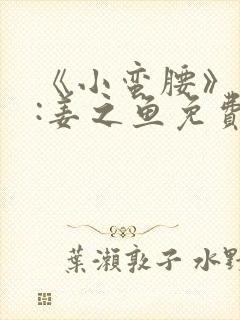 《小蛮腰》
:姜之鱼免費
葉瀬敦子 水野